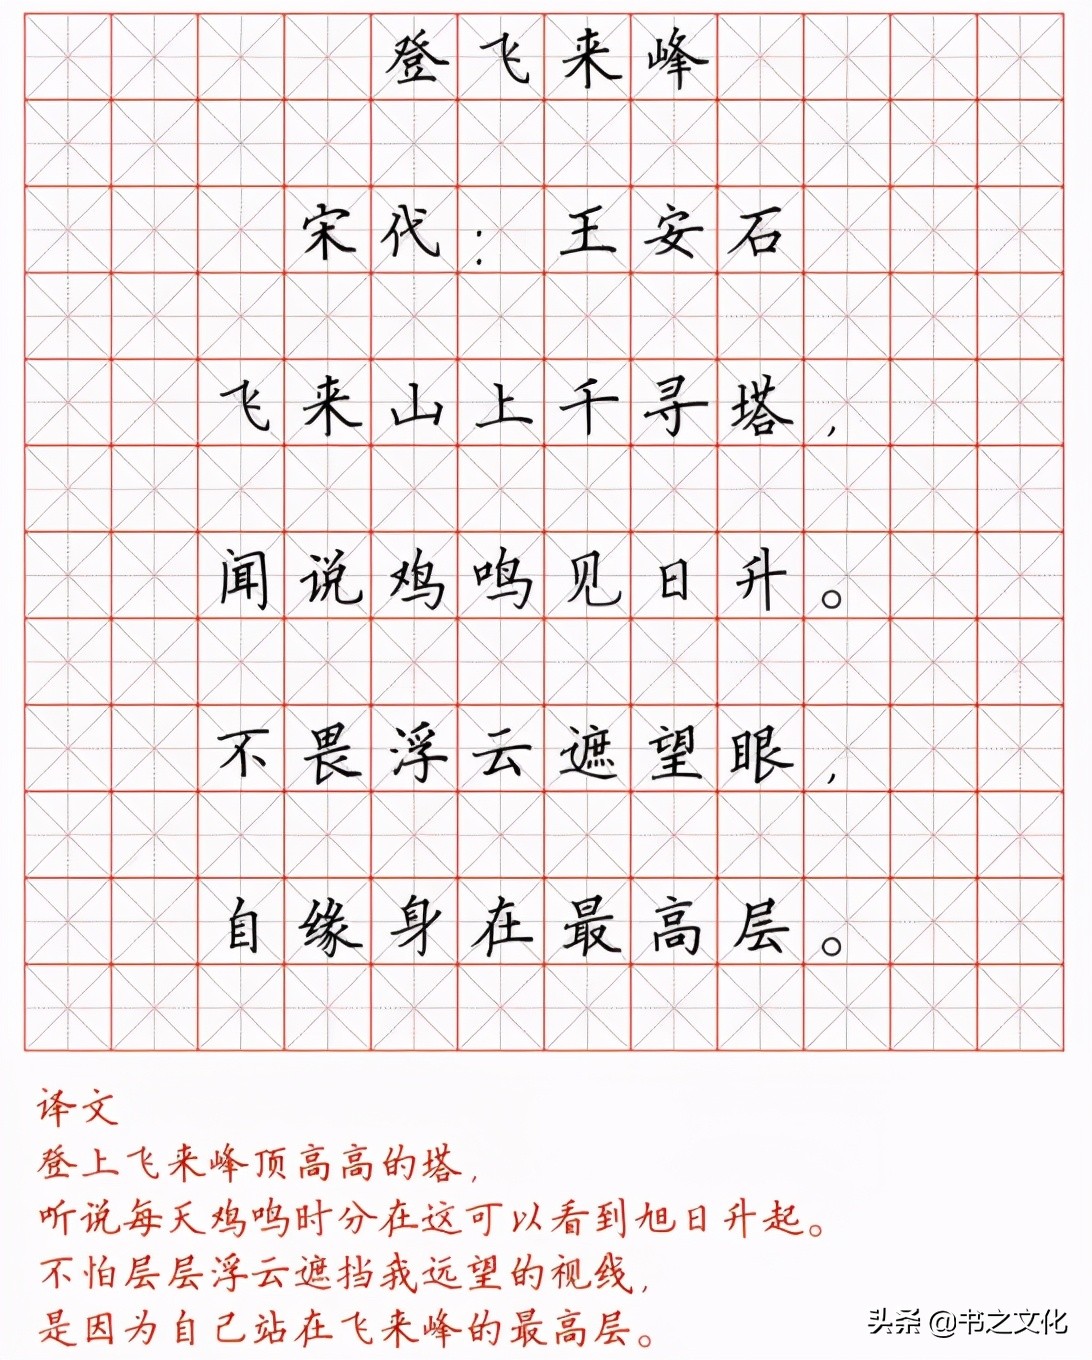 登飞来峰
宋代：王安石
飞来山上千寻塔，
闻说鸡鸣见日升。
不畏浮云遮望眼，
自缘身在最高层。
译文
登上飞来峰顶高高的塔，
听说每天鸡鸣时分在这可以看到旭日升起。
不怕层层浮云遮挡我远望的视线，
是因为自己站在飞来峰的最高层。
头条 @书之文化